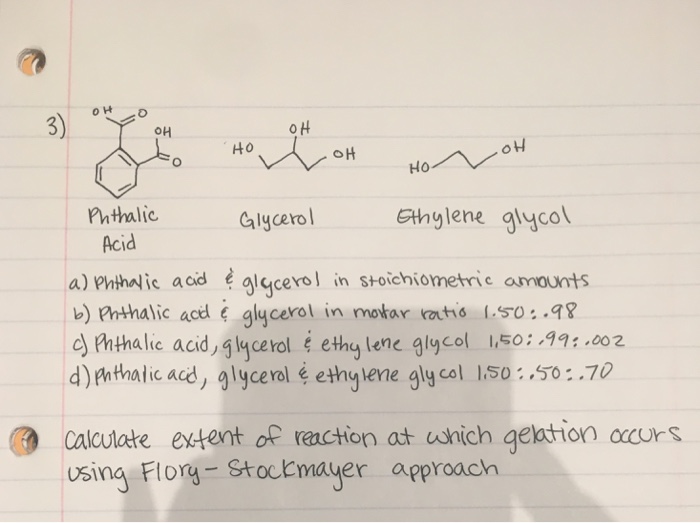 3)
OH O OH O
HO OH OH
HO OH
Phthalic Acid
Glycerol
Ethylene glycol
a) Phthalic acid & glycerol in stoichiometric amounts
b) Phthalic acid & glycerol in molar ratio 1.50:.98
c) Phthalic acid, glycerol & ethylene glycol 1,50:.99:.002
d) phthalic acid, glycerol & ethylene glycol 1.50:.50:.70
Calculate extent of reaction at which gelation occurs
using Flory-Stockmayer approach